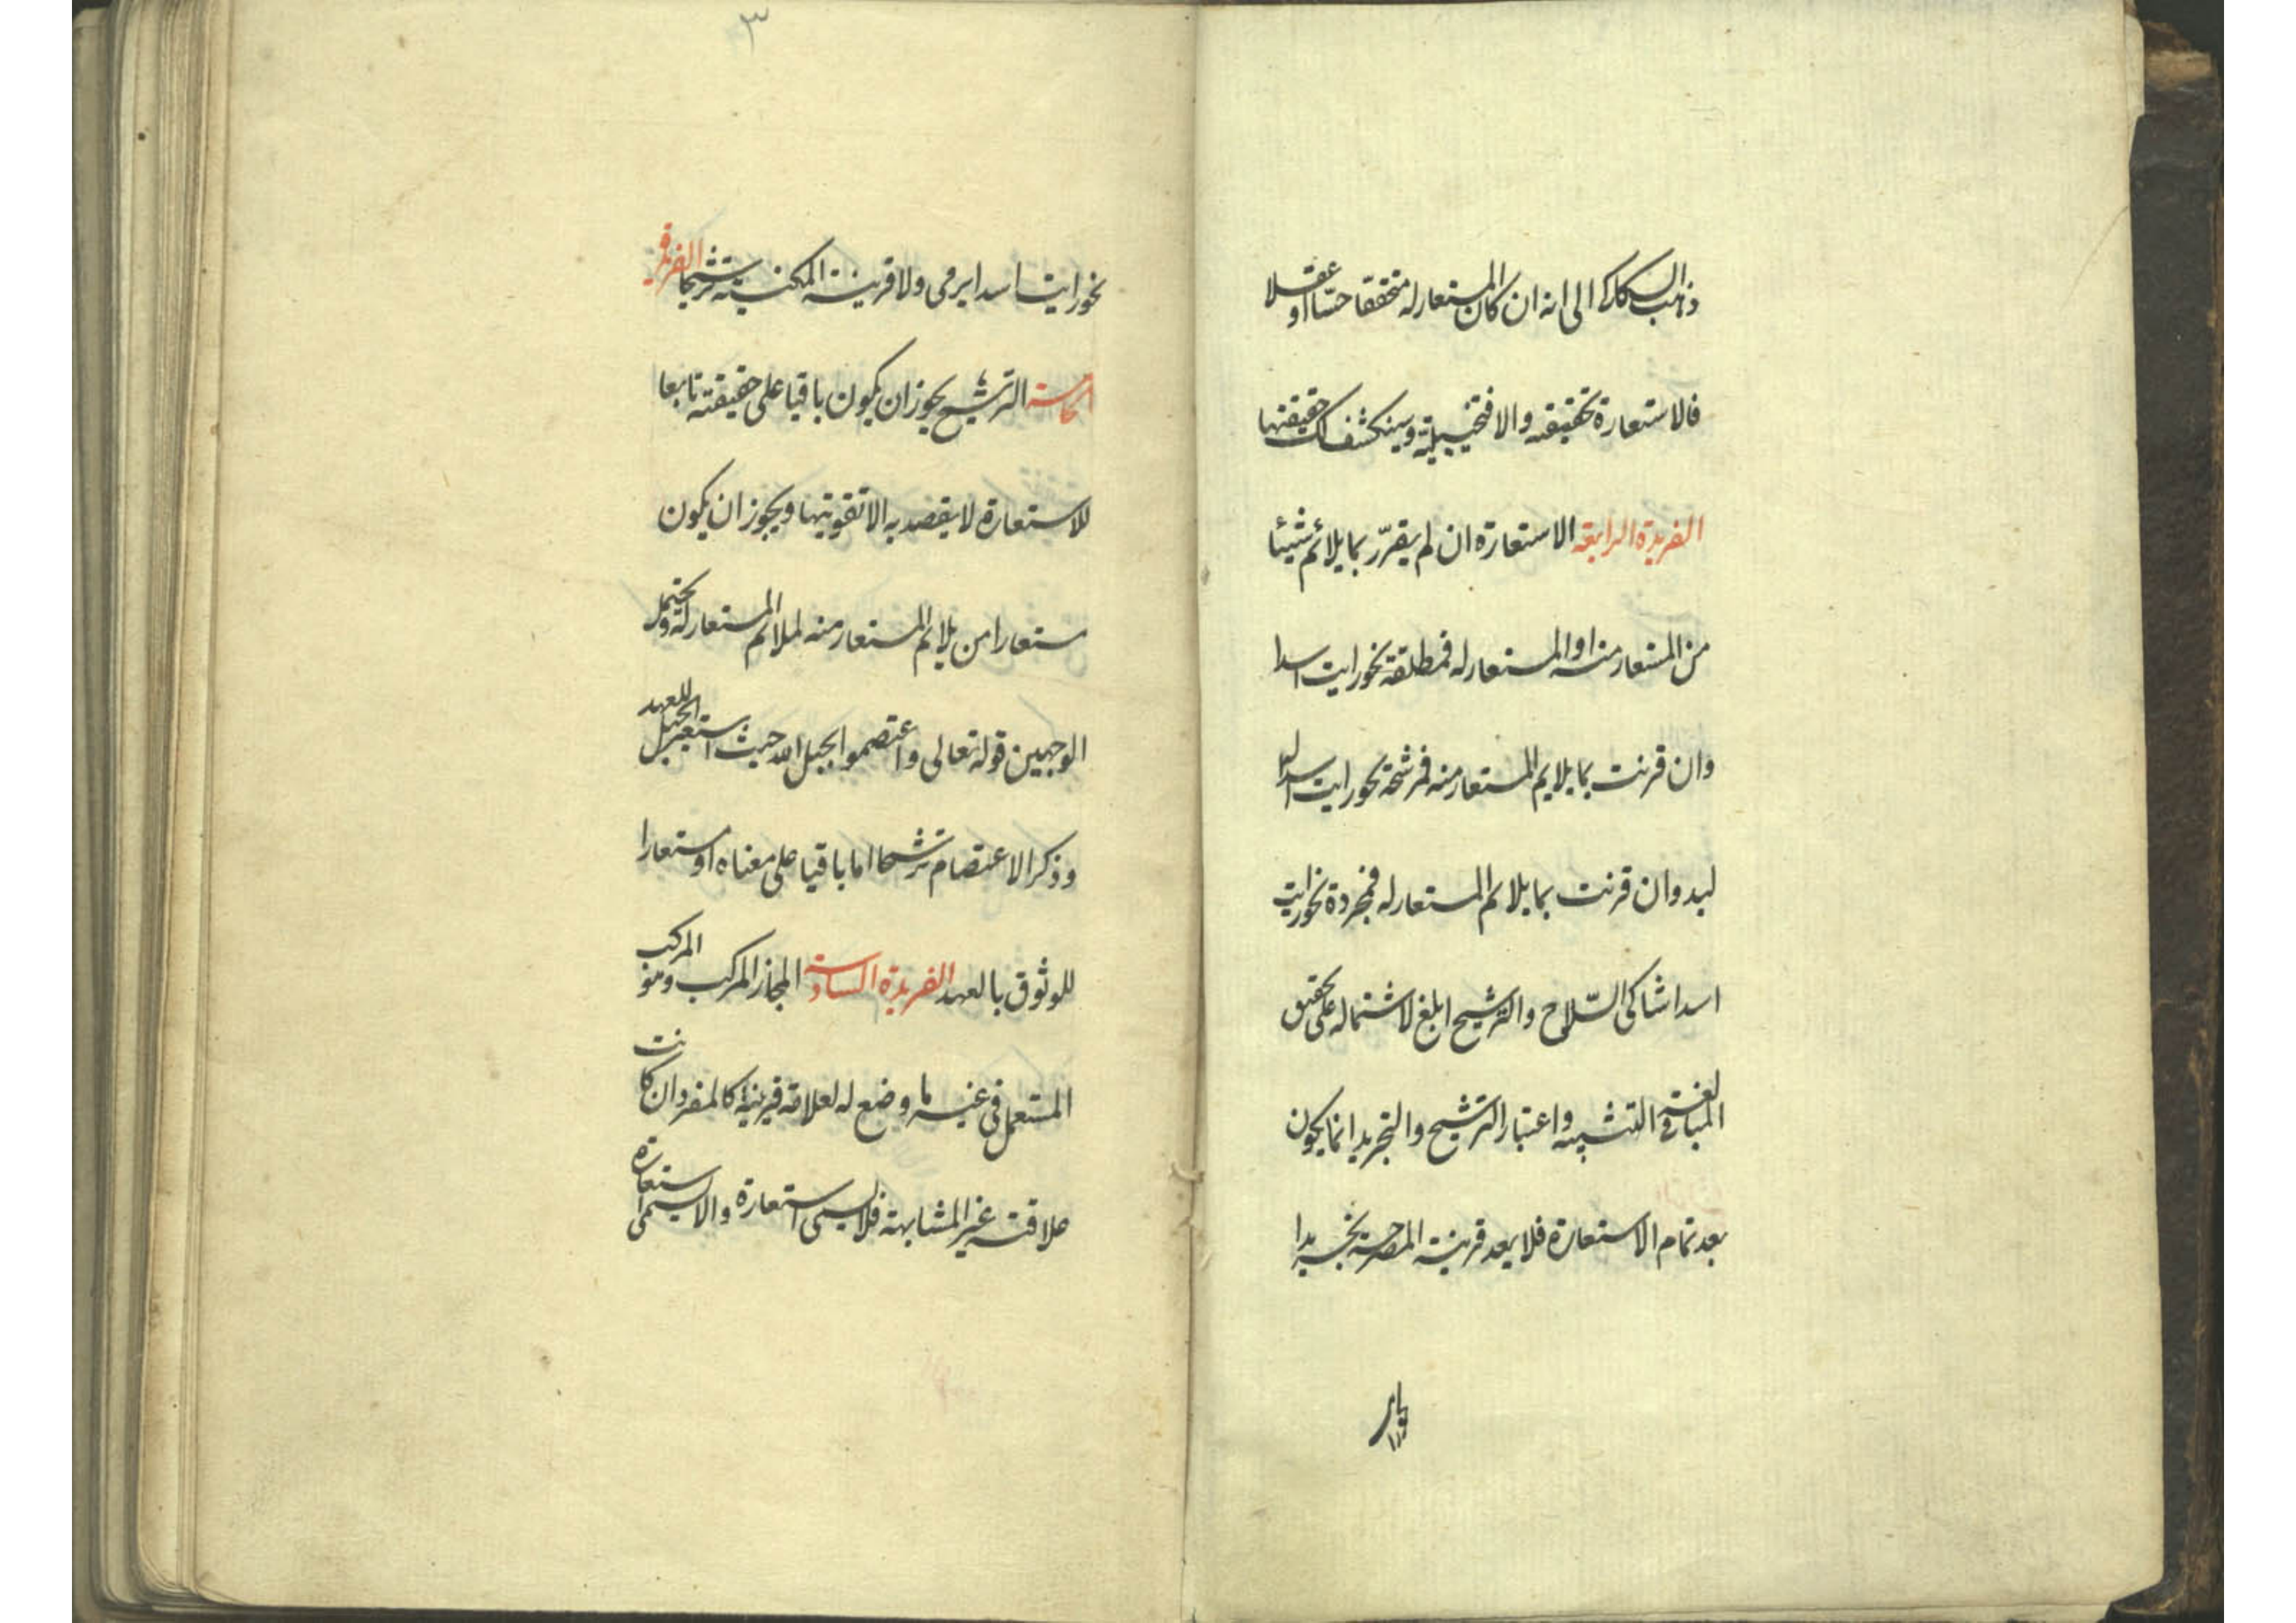 ذهب السكاكى الى انه ان كان المستعار له متحققا حسا او عقلا
فالاستعارة تحقيقية والا فتخييلية وسينكشف لك حقيقتها
الفريدة الرابعة الاستعارة ان لم يقرّر بما يلائم شيئا
من المستعار منه او المستعار له فمطلقة نحو رايت اسدا
وان قرنت بما يلايم المستعار منه فمرشحة نحو رايت اسدا له
لبد وان قرنت بما يلائم المستعار له فمجردة نحو رايت
اسدا شاكى السّلاح والترشيح ابلغ لاشتماله على تحقيق
المبالغة فى التشبيه واعتبار الترشيح والتجريد انما يكون
بعد تمام الاستعارة فلا يعد قرينة المصرحة تجريدا
٣
نحو رايت اسدا يرمى ولا قرينة المكنية ترشيحا الفريدة
الخامسة الترشيح يجوز ان يكون باقيا على حقيقته تابعا
للاستعارة لا يقصد به الا تقويتها ويجوز ان يكون
مستعارا من يلائم المستعار منه لملائم المستعار له ويحتمل
الوجهين قوله تعالى واعتصموا بحبل الله حيث استعير الحبل للعهد
وذكر الاعتصام ترشيحا اما باقيا على معناه او مستعارا
للوثوق بالعهد الفريدة السادسة المجاز المركب وهو المركب
المستعمل فى غير ما وضع له لعلاقة قرينة كالمفرد ان كانت
علاقته غير المشابهة فلا يسمى استعارة والا يسمى استعارة